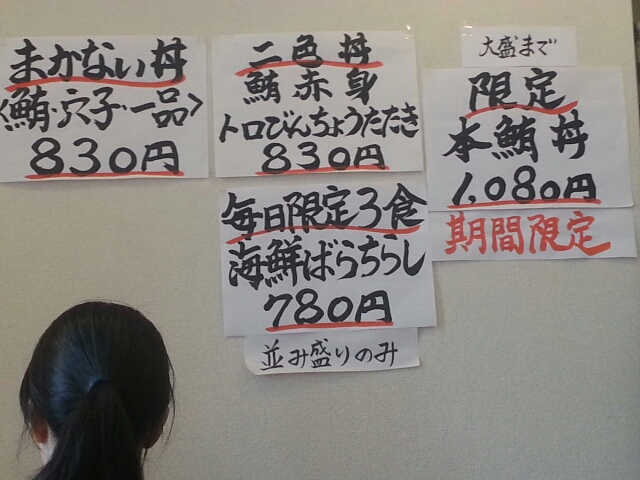 まかない丼
〈鮪・穴子・一品〉
830円
二色丼
鮪赤身
トロびんちょうたたき
830円
大盛まで
限定
本鮪丼
1,080円
期間限定
毎日限定3食
海鮮ばらちらし
780円
並み盛りのみ